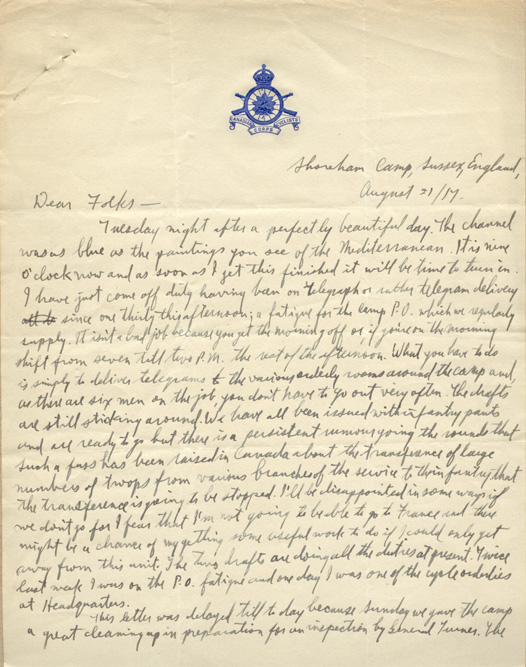 CANADIAN CYCLISTS
CORPS
Shoreham Camp, Sussex, England,
August 21/17.
Dear Folks —
Tuesday night after a perfectly beautiful day. The channel
was as blue as the paintings you see of the Mediterranean. It is nine
o'clock now and as soon as I get this finished it will be time to turn in.
I have just come off duty having been on telegraph or rather telegram delivery
since one thirty this afternoon; a fatigue for the camp P.O. which we regularly
supply. It isn't a bad job because you get the morning off or, if you're on the morning
shift from seven till two P.M. the rest of the afternoon. What you have to do
is simply to deliver telegrams to the various orderly rooms around the camp and,
as there are six men on the job you don't have to go out very often. The drafts
are still sticking around. We have all been issued with infantry pants
and are ready to go but there is a persistent rumour going the rounds that
such a fuss has been raised in Canada about the transference of large
numbers of troops from various branches of the service to the infantry that
the transference is going to be stopped. I'll be disappointed in some ways if
we don't go for I fear that I'm not going to be able to go to France and there
might be a chance of my getting some useful work to do if I could only get
away from this unit. The two drafts are doing all the duties at present. Twice
last week I was on the P.O. fatigue and one day I was one of the cycle orderlies
at Headquarters.
This letter was delayed till to day because Sunday we gave the camp
a great cleaning up in preparation for an inspection by General Turner. The